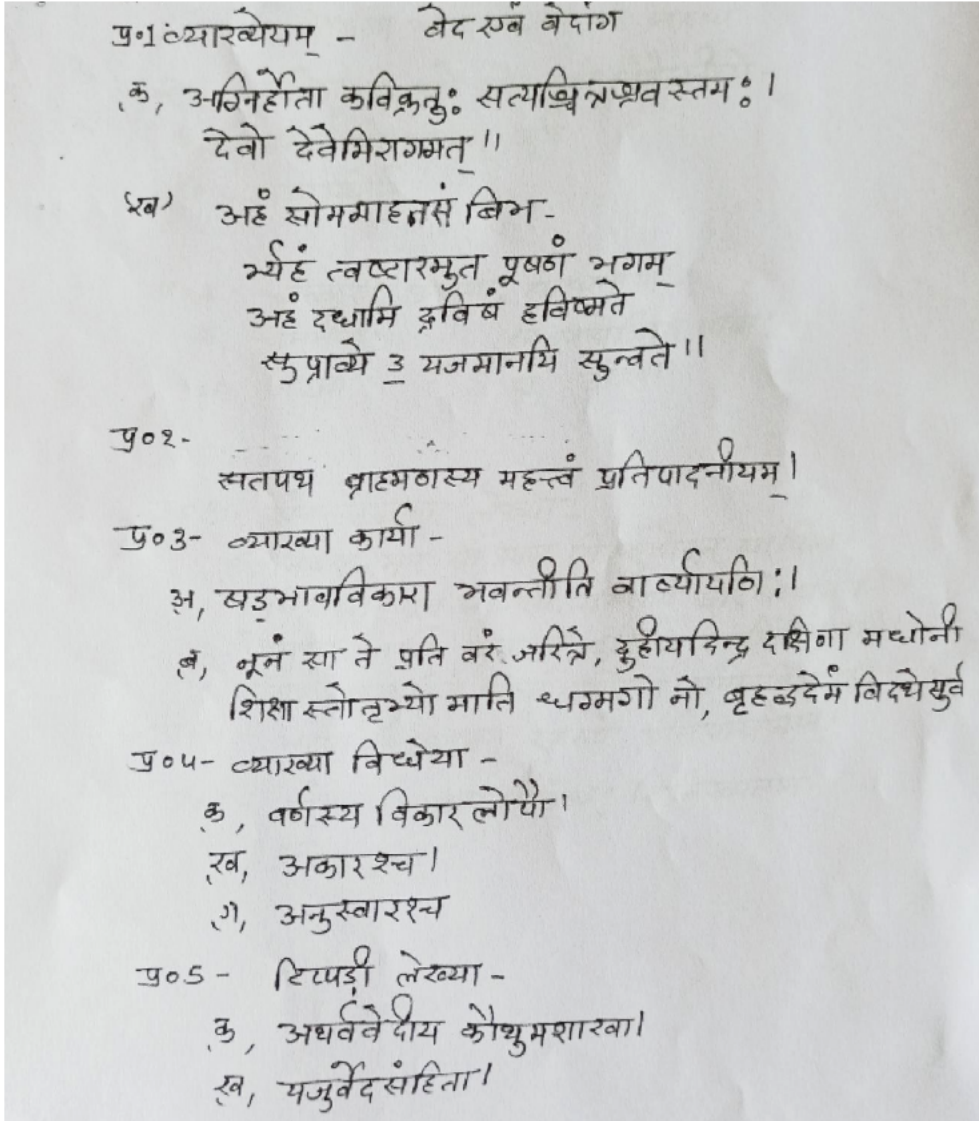 प्र०1 व्याख्येयम् - वेद एवं वेदांग
क, अग्निर्होता कविक्रतुः सत्यश्चित्रश्रवस्तमः।
देवो देवेभिरागमत्॥
(ख) अहं सोममाहनसं बिभ-
र्म्यहं त्वष्टारमुत पूषणं भगम्
अहं दधामि द्रविषं हविष्मते
सुप्राव्ये ३ यजमानयि सुन्वते॥
प्र०२-
सतपथ ब्राह्मणस्य महत्त्वं प्रतिपादनीयम्।
प्र०3- व्याख्या कार्या -
अ, षड्भावविकारा भवन्तीति वार्ष्यायणिः।
ब, नूनं सा ते प्रति वरं जरित्रे, दुहीयदिन्द्र दक्षिणा मघोनी
शिक्षा स्तोतृभ्यो माति धग्भगो नो, बृहद्वदेम विदथेसुर्व
प्र०4- व्याख्या विधेया -
क, वर्णस्य विकारलोपौ।
ख, अकारश्च।
ग, अनुस्वारश्च
प्र०5- टिप्पड़ी लेख्या -
क, अथर्ववेदीय कौथुमशाखा।
ख, यजुर्वेदसंहिता।